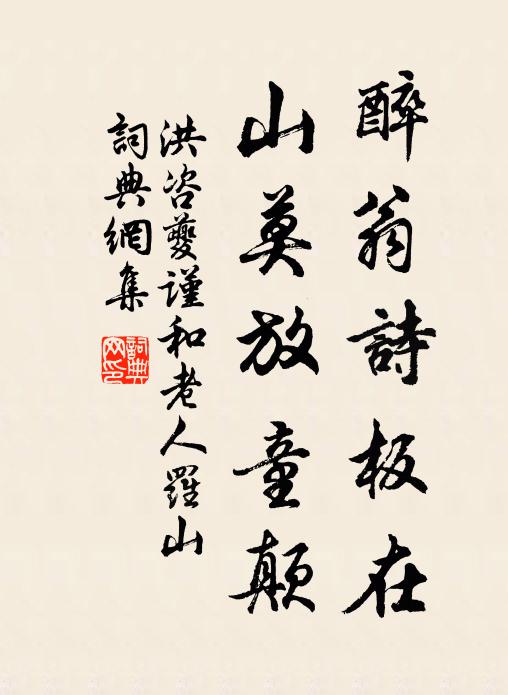 醉翁詩板在
山莫放童顛
洪咨夔謹和老人羅山
詞典網集
詞典
网印